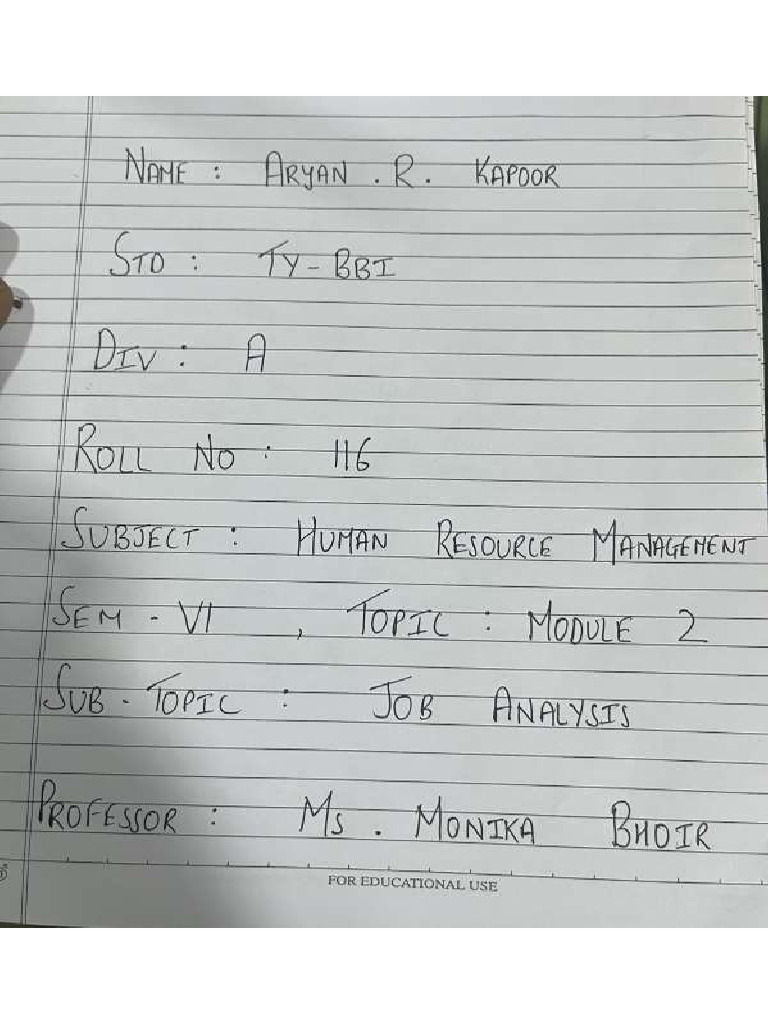 NAME : ARYAN . R. KAPOOR
STD : TY-BBI
DIV : A
ROLL NO : 116
SUBJECT : HUMAN RESOURCE MANAGEMENT
SEM - VI , TOPIC : MODULE 2
SUB - TOPIC : JOB ANALYSIS
PROFESSOR : MS . MONIKA BHOIR
FOR EDUCATIONAL USE